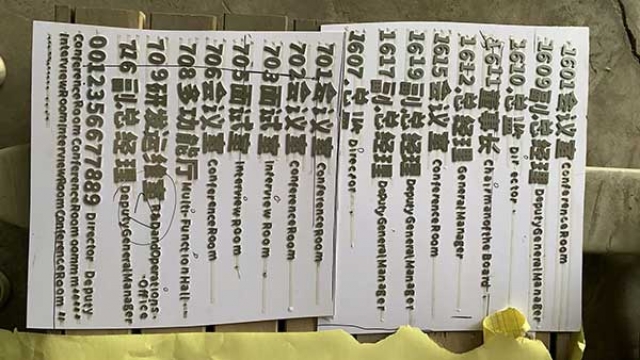 1601会议室 ConferenceRoom
1609副总经理 DeputyGeneralManager
1610.总监 Director
1611董事长 ChairmanoftheBoard
1612.总经理 GeneralManager
1615会议室 ConferenceRoom
1619副总经理 DeputyGeneralManager
1617副总经理 DeputyGeneralManager
1607 总监 Director
701会议室 ConferenceRoom
702会议室 ConferenceRoom
703面试室 Interview Room
705面试室 Interview Room
706会议室 ConferenceRoom
708多功能厅 Multi-FunctionHall
709研发运维室 Office
716副总经理 DeputyGeneralManager
0012356677889 Director Deputy
ConferenceRoom ConferenceRoom
InterviewRoom InterviewRoom ConferenceRoom